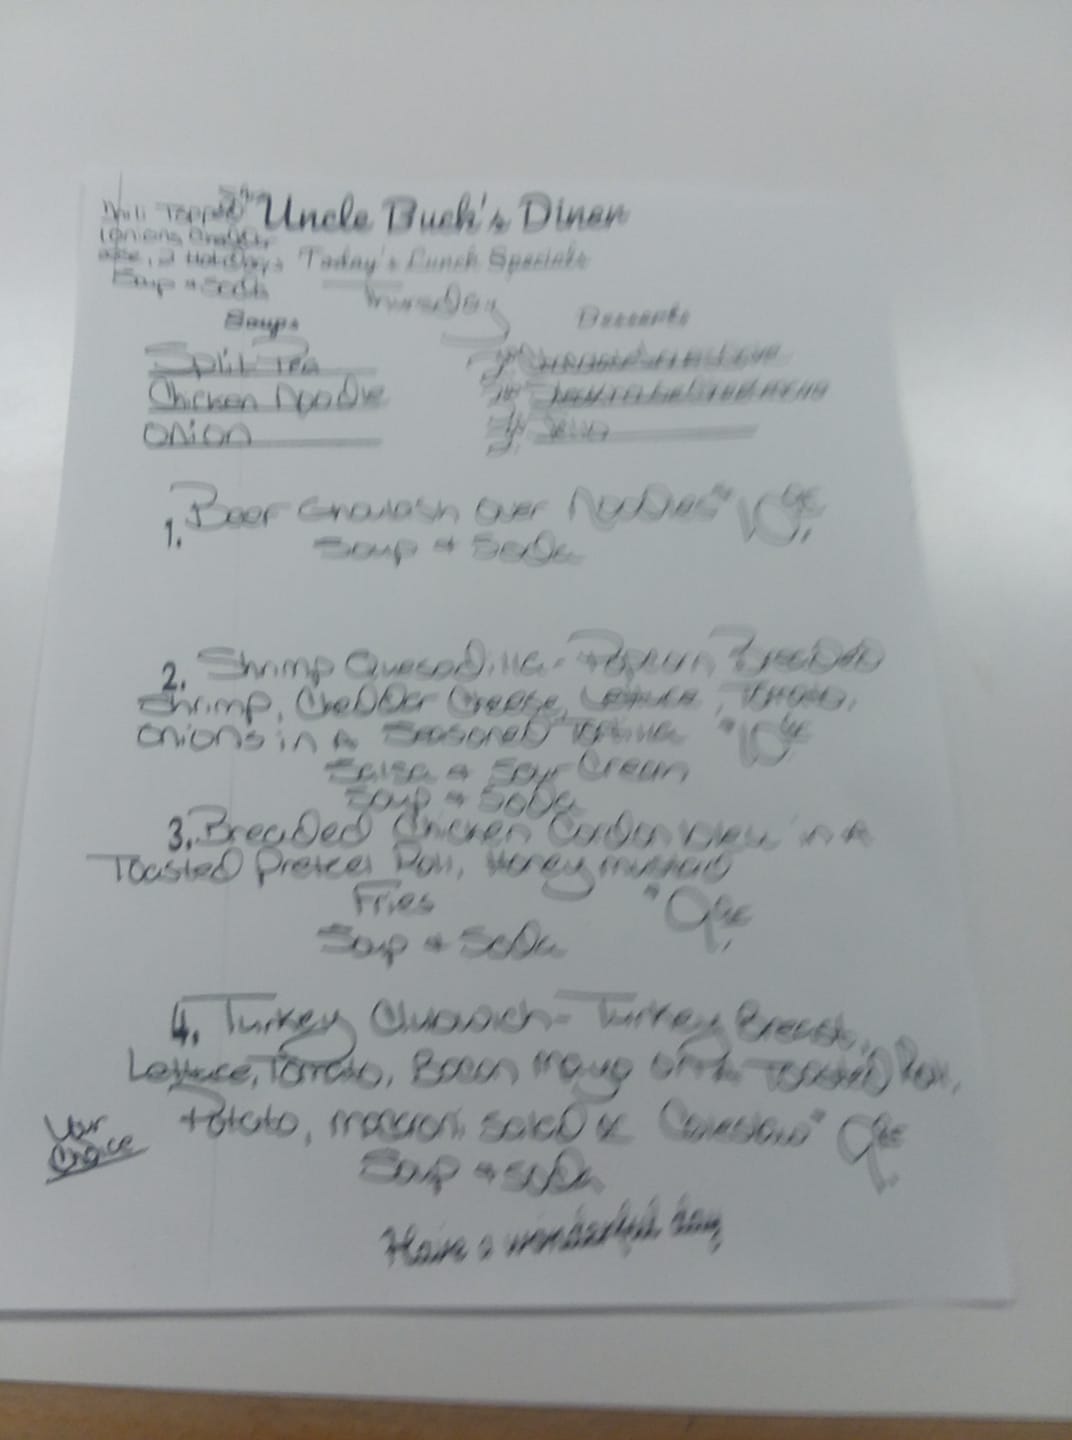 Chili Topped
Onions, Cheddar
2 Hot Dogs
Soup + Soda
Uncle Buck's Diner
Today's Lunch Specials
Thursday
Soups
Desserts
Split Pea
Chicken Noodle
Onion
Jello
1. Beef Goulash over Noodles
Soup + Soda
2. Shrimp Quesadilla - Popcorn Breaded
Shrimp, Cheddar Cheese, Lettuce, Tomato,
Onions in A Seasoned Tortilla
Salsa + Sour Cream
Soup + Soda
3. Breaded Chicken Cordon bleu in A
Toasted Pretzel Roll, Honey mustard
Fries
Soup + Soda
4. Turkey Clubwich - Turkey Breast,
Lettuce, Tomato, Bacon Mayo on a Toasted Roll,
Potato, macaroni salad or Coleslaw
Your
Choice
Soup + Soda
Have a wonderful day